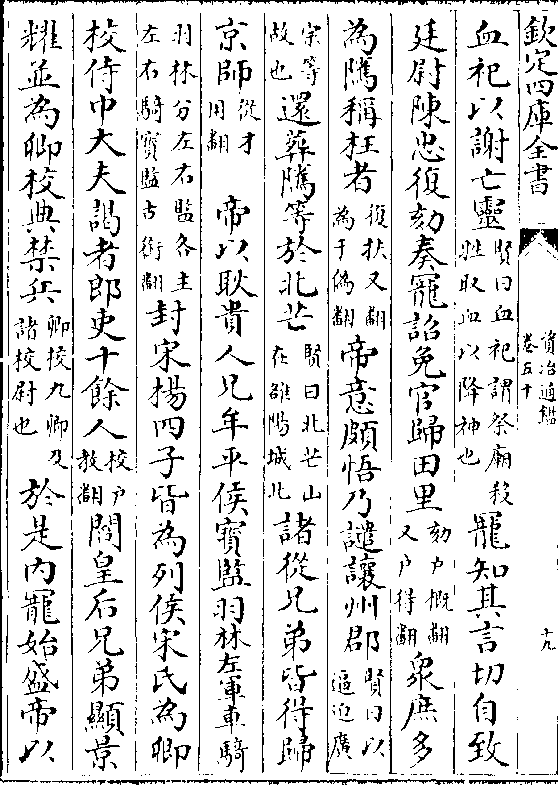 欽定四庫全書
資治通鑑
卷五十
十九
血祀以謝亡靈賢曰血祀謂祭廟殺牲取血以降神也寵知其言切自致
廷尉陳忠復劾奏寵詔免官歸田里劾户概翻又户得翻衆庶多
為隲稱枉者復扶又翻為于偽翻帝意頗悟乃譴讓州郡賢曰以逼迫廣
宗等故也還葬隲等於北芒賢曰北芒山在雒陽城北諸從兄弟皆得歸
京師從才用翻帝以耿貴人兄牟平侯寶監羽林左軍車騎
羽林分左右監各主左右騎寶監古銜翻封宋楊四子皆為列侯宋氏為卿
校侍中大夫謁者郎吏十餘人校户教翻閻皇后兄弟顯景
耀並為卿校典禁兵卿校九卿及諸校尉也於是内寵始盛帝以